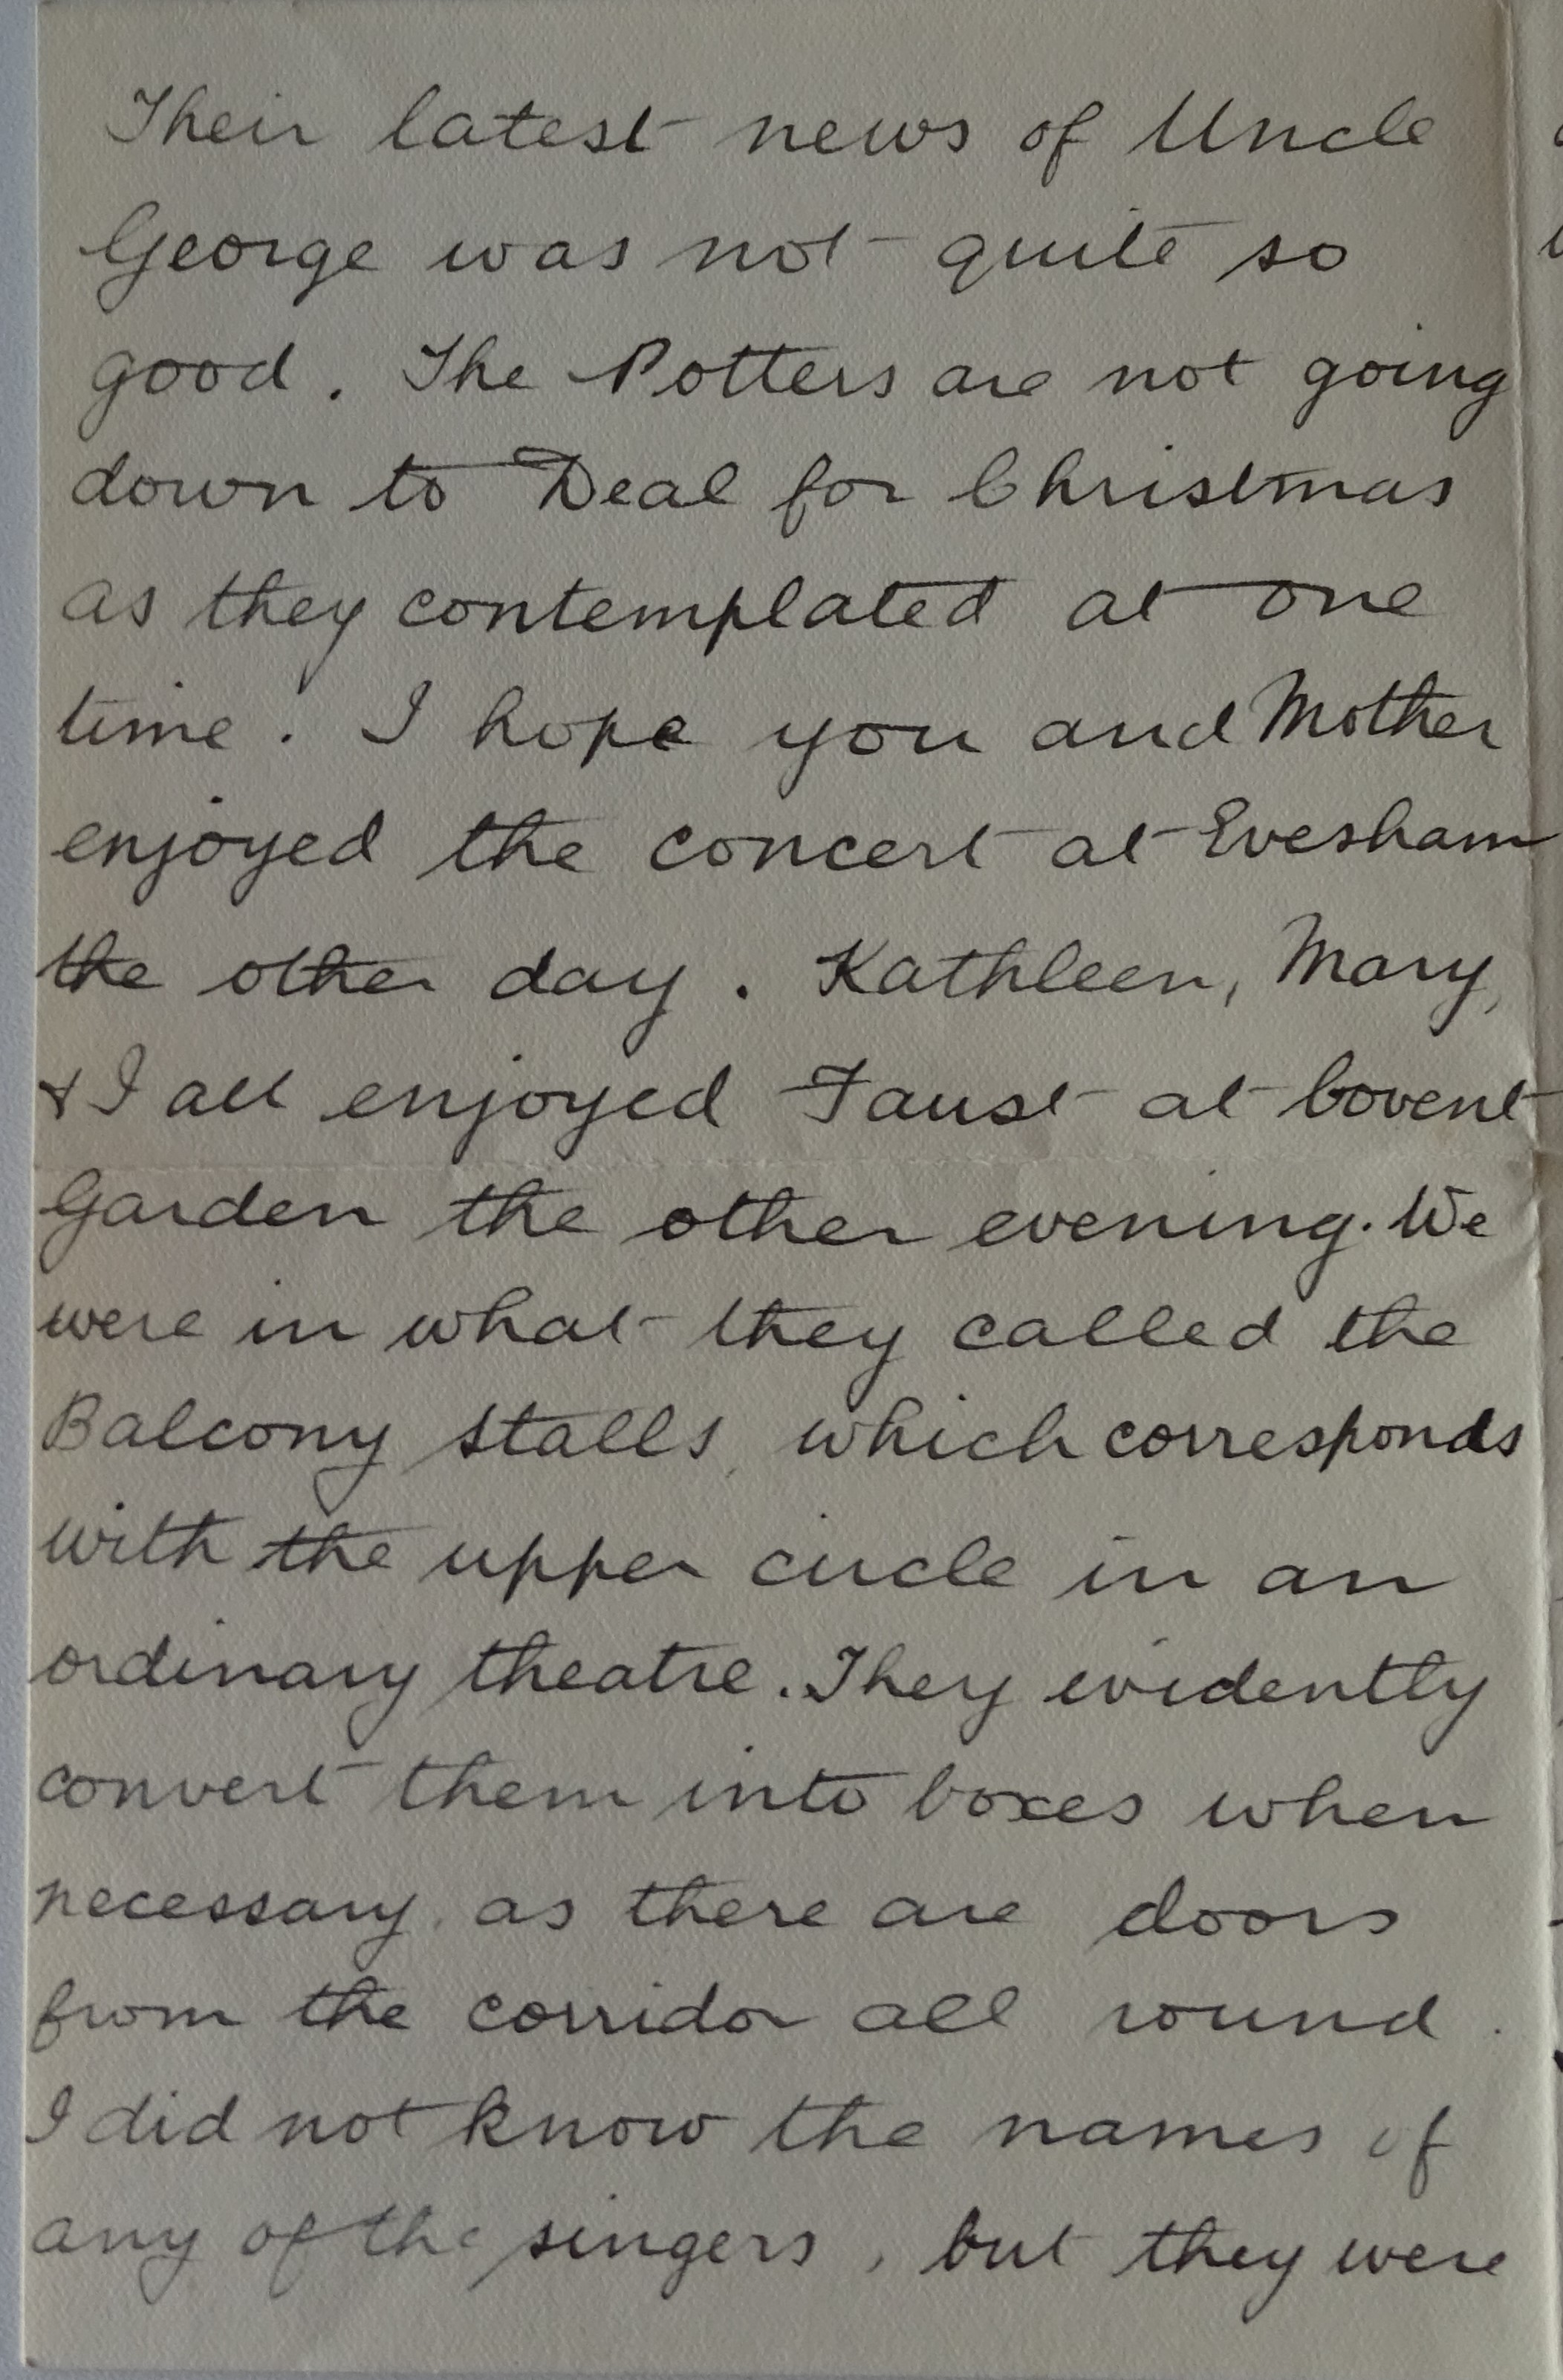 Their latest news of Uncle
George was not quite so
good. The Potters are not going
down to Deal for Christmas
as they contemplated at one
time. I hope you and Mother
enjoyed the concert at Evesham
the other day. Kathleen, Mary,
& I all enjoyed Faust at Covent
Garden the other evening. We
were in what they called the
Balcony stalls, which corresponds
with the upper circle in an
ordinary theatre. They evidently
convert them into boxes when
necessary, as there are doors
from the corridor all round.
I did not know the names of
any of the singers, but they were